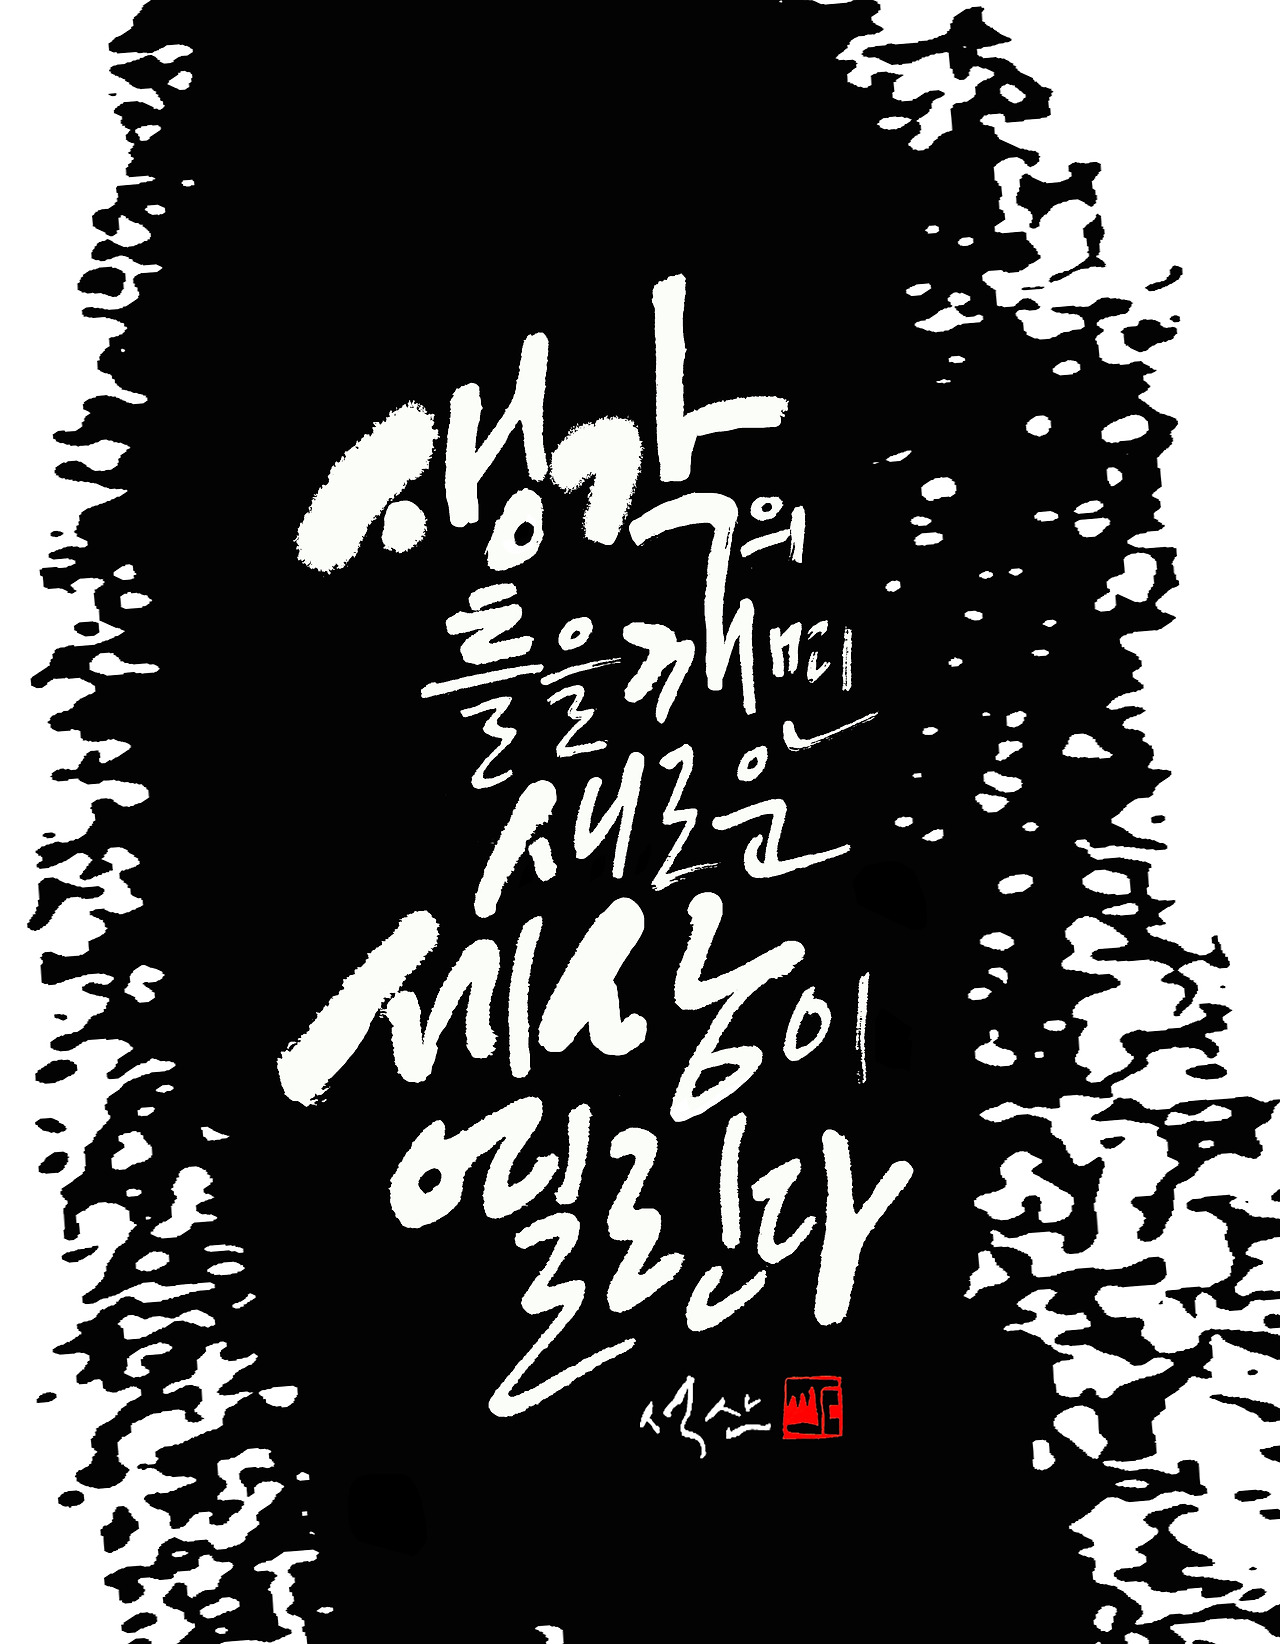 생각의
틀을 깨면
새로운
세상이
열린다
석산